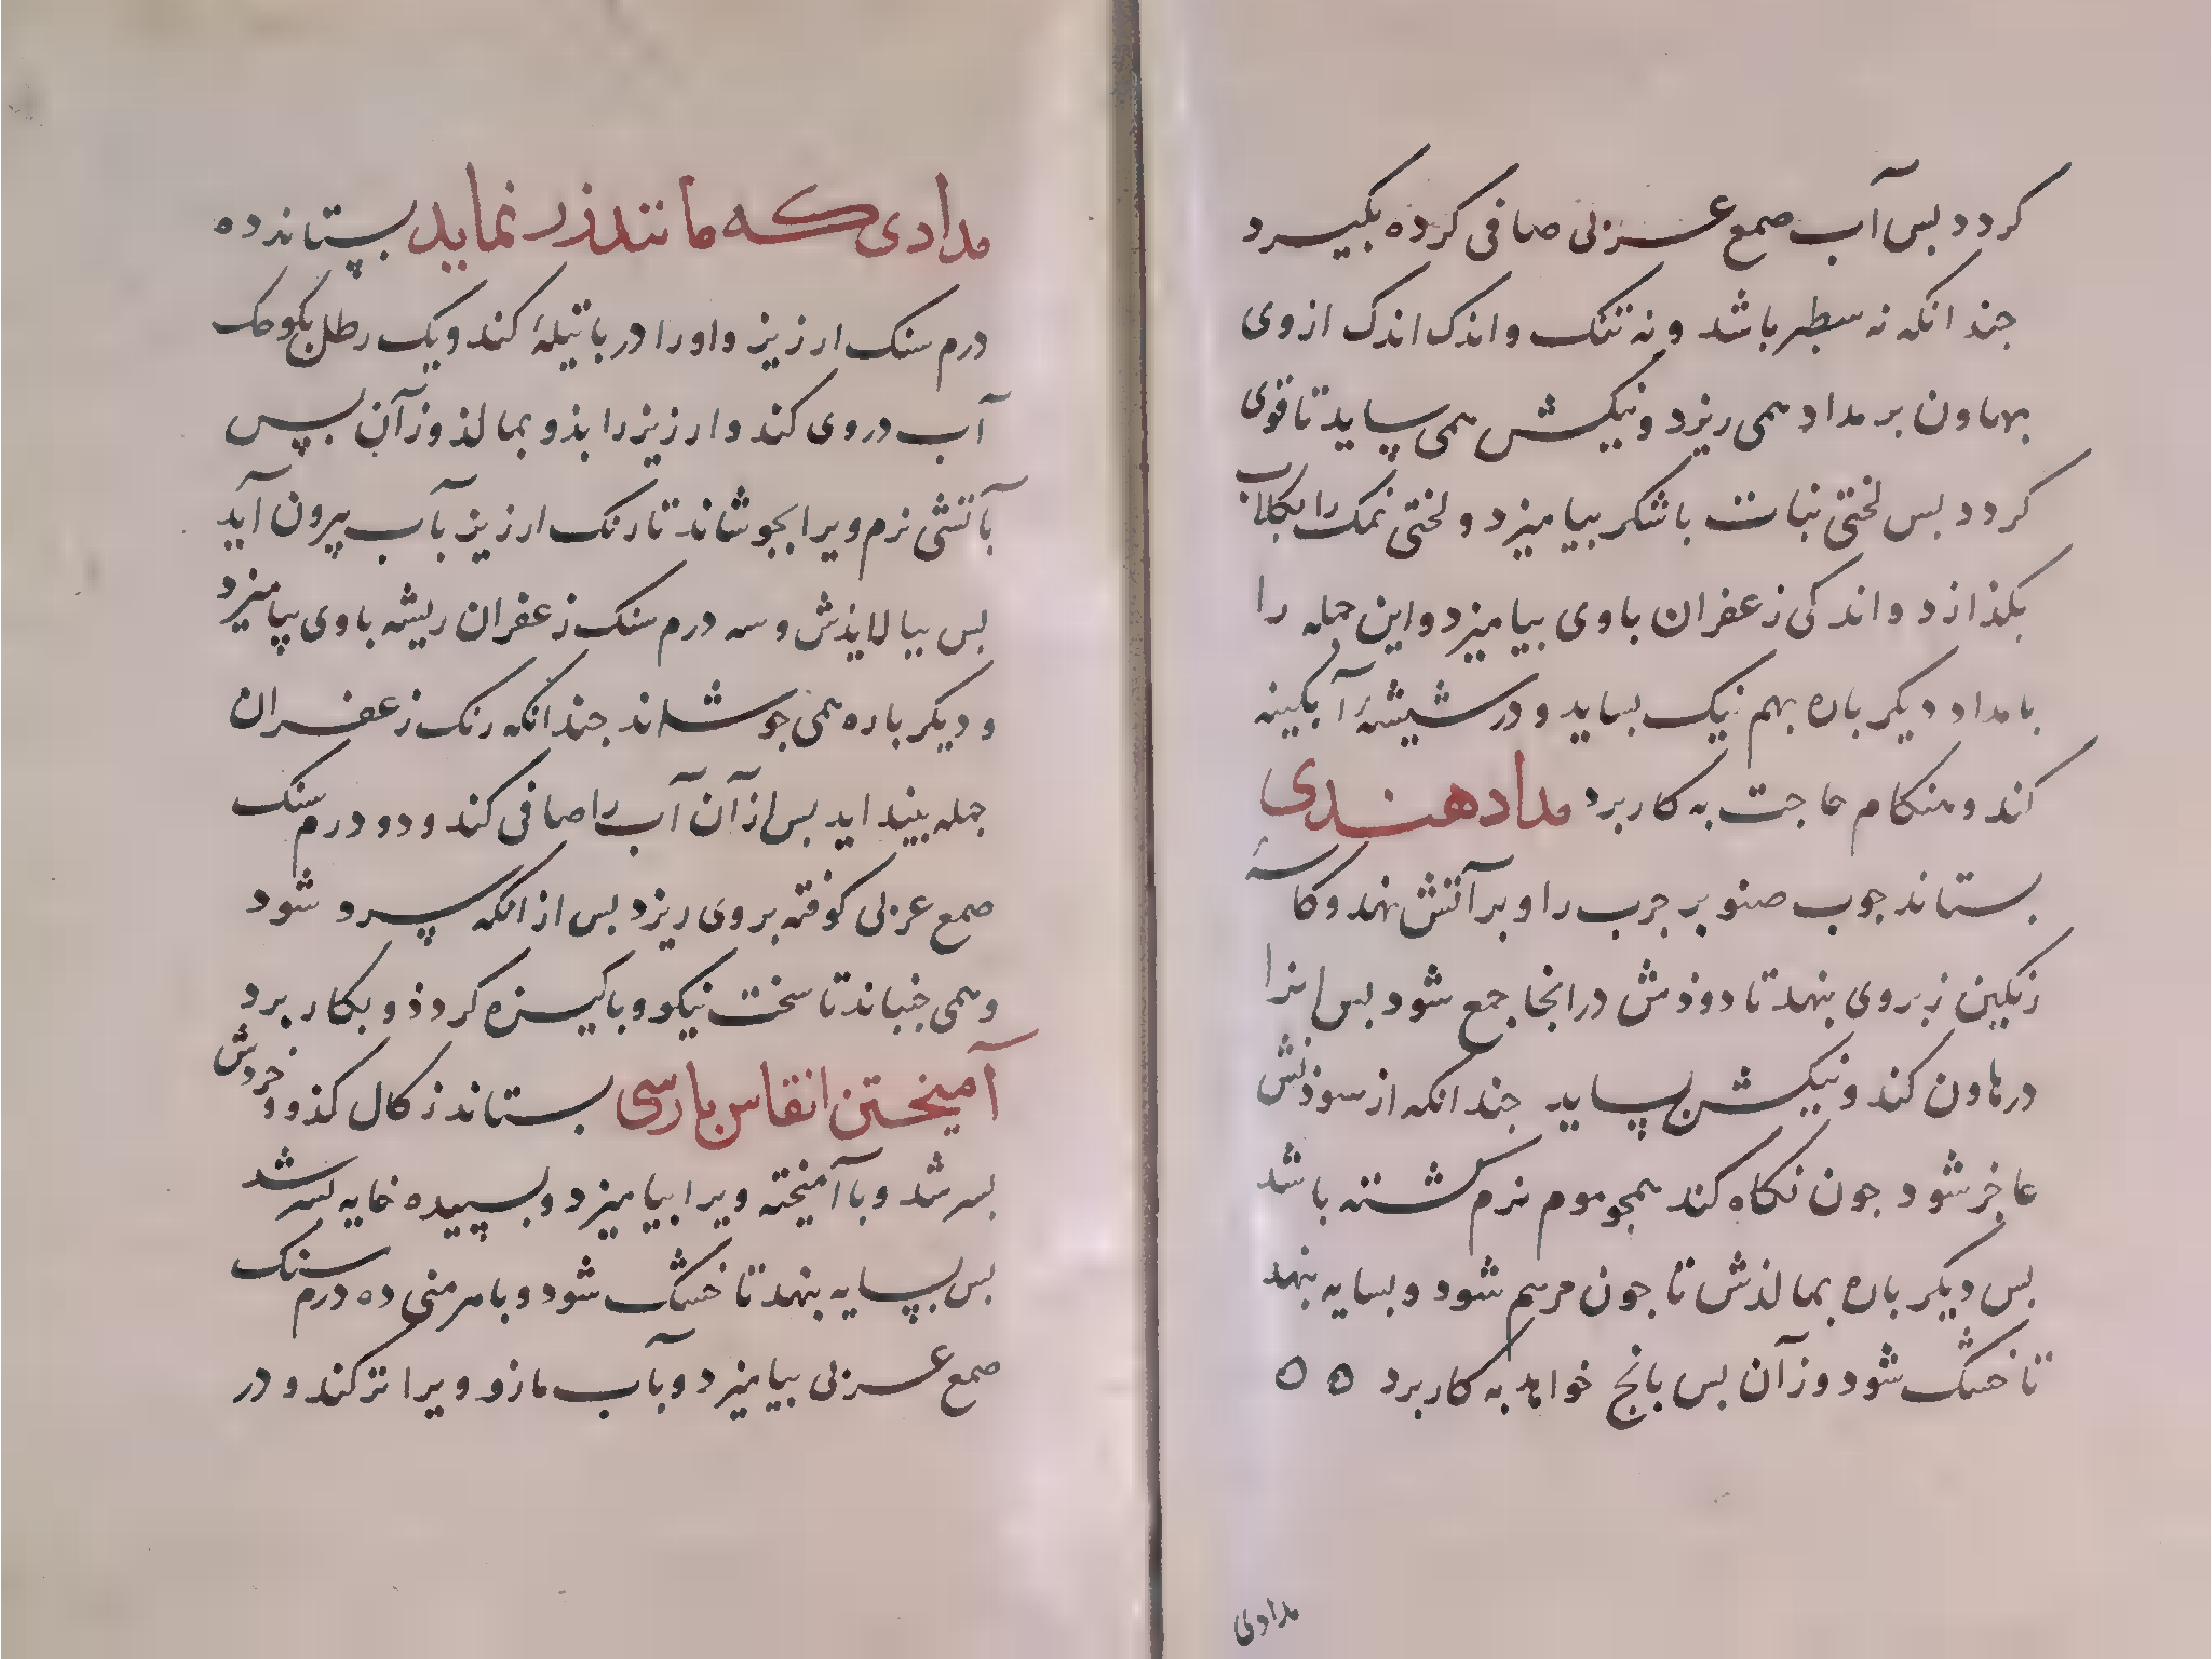 کردد بس آب صمع عربی صافی کرده بکیرد
جندانکه نه سطبر باشد و نه تنک و اندک اندک از وی
بهاون بر مداد همی ریزد و نیکش همی ساید تا قوی
کردد بس لختی نبات با شکر بیامیزد و لختی نمک را بکلاب
بکذازد و اندکی زعفران باوی بیامیزد و این جمله را
بامداد دیکر باره بهم نیک بساید و در شیشهٔ آبکینه
کند و هنکام حاجت به کار برد مداد هندی
بستاند جوب صنوبر جرب را و بر آتش نهد و کاسهٔ
زنکین زبروی بنهد تا دوذش درانجا جمع شود بس انرا
در هاون کند و نیکش بساید جندانکه از سوذنش
عاجز شود جون نکاه کند همجو موم نرم کشته باشد
بس دیکر باره بمالذش تا جون مرهم شود و بسایه بنهد
تا خشک شود وز آن بس بانج خواهد به کار برد ه ه
مدادی
مدادی که مانند زر نماید بستاند ده
درم سنک ارزیز و او را در باتیلهٔ کند و یک رطل بکوجک
آب در وی کند و ارزیز را بذو بمالذ وز آن بس
بآتشی نرم ویرا بجوشاند تا رنک ارزیز بآب بیرون آید
بس بیالایذش و سه درم سنک زعفران ریشه باوی بیامیزد
و دیکر باره همی جوشاند جندانکه رنک زعفران
جمله بینداید بس از آن آب را صافی کند و دو درم سنک
صمع عربی کوفته بروی ریزد بس از انکه سرد شود
و همی جنباند تا سخت نیکو و باکیزه کردذ و بکار برد
آمیختن انقاس بارسی بستاند زکال کذو و خروش
بسرشد و با آمیخته ویرا بیامیزد و بسپیده خایه بسرشد
بس بسایه بنهد تا خشک شود و با هر منی ده درم سنک
صمع عربی بیامیزد و بآب مازو ویرا تر کند و در